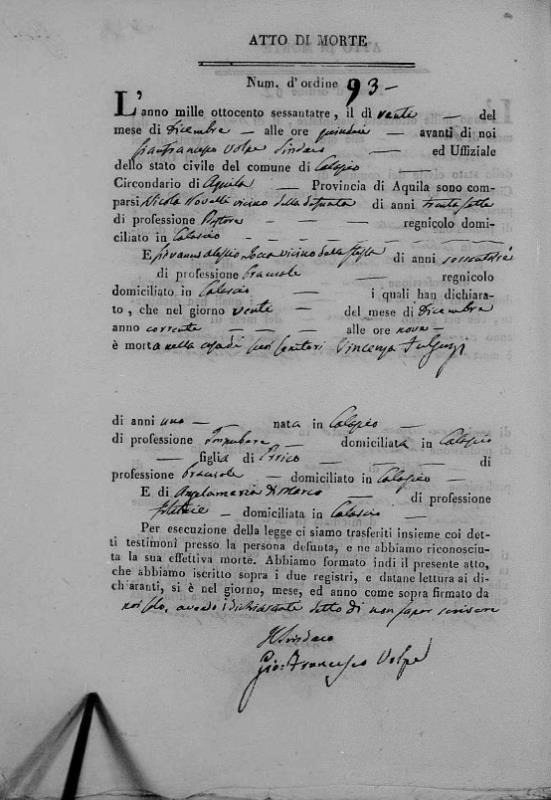 ATTO DI MORTE
Num. d'ordine 93
L'anno mille ottocento sessantatre, il dì venti — del
mese di Dicembre — alle ore quindici — avanti di noi
Gianfrancesco Volpe Sindaco — ed Uffiziale
dello stato civile del comune di Calascio —
Circondario di Aquila — Provincia di Aquila sono com-
parsi Nicola Novelli vicino della defunta di anni trentasette
di professione Pastore — regnicolo domi-
ciliato in Calascio
E Giovannalessio vicino della stessa di anni sessantasei
di professione Bracciale — regnicolo
domiciliato in Calascio — i quali han dichiara-
to, che nel giorno venti — del mese di Dicembre
anno corrente — alle ore nove —
è morta nella casa di suoi Genitori Vincenza Fulgenzi
di anni uno — nata in Calascio —
di professione Impubere — domiciliata in Calascio
— figlia di Errico — di
professione Bracciale — domiciliato in Calascio —
E di Angelamaria — di professione
— domiciliata in Calascio —
Per esecuzione della legge ci siamo trasferiti insieme coi det-
ti testimonî presso la persona defunta, e ne abbiamo riconosciu-
ta la sua effettiva morte. Abbiamo formato indi il presente atto,
che abbiamo iscritto sopra i due registri, e datane lettura ai di-
chiaranti, si è nel giorno, mese, ed anno come sopra firmato da
noi solo, avendo i dichiaranti detto di non saper scrivere
Il Sindaco
Gio: Francesco Volpe